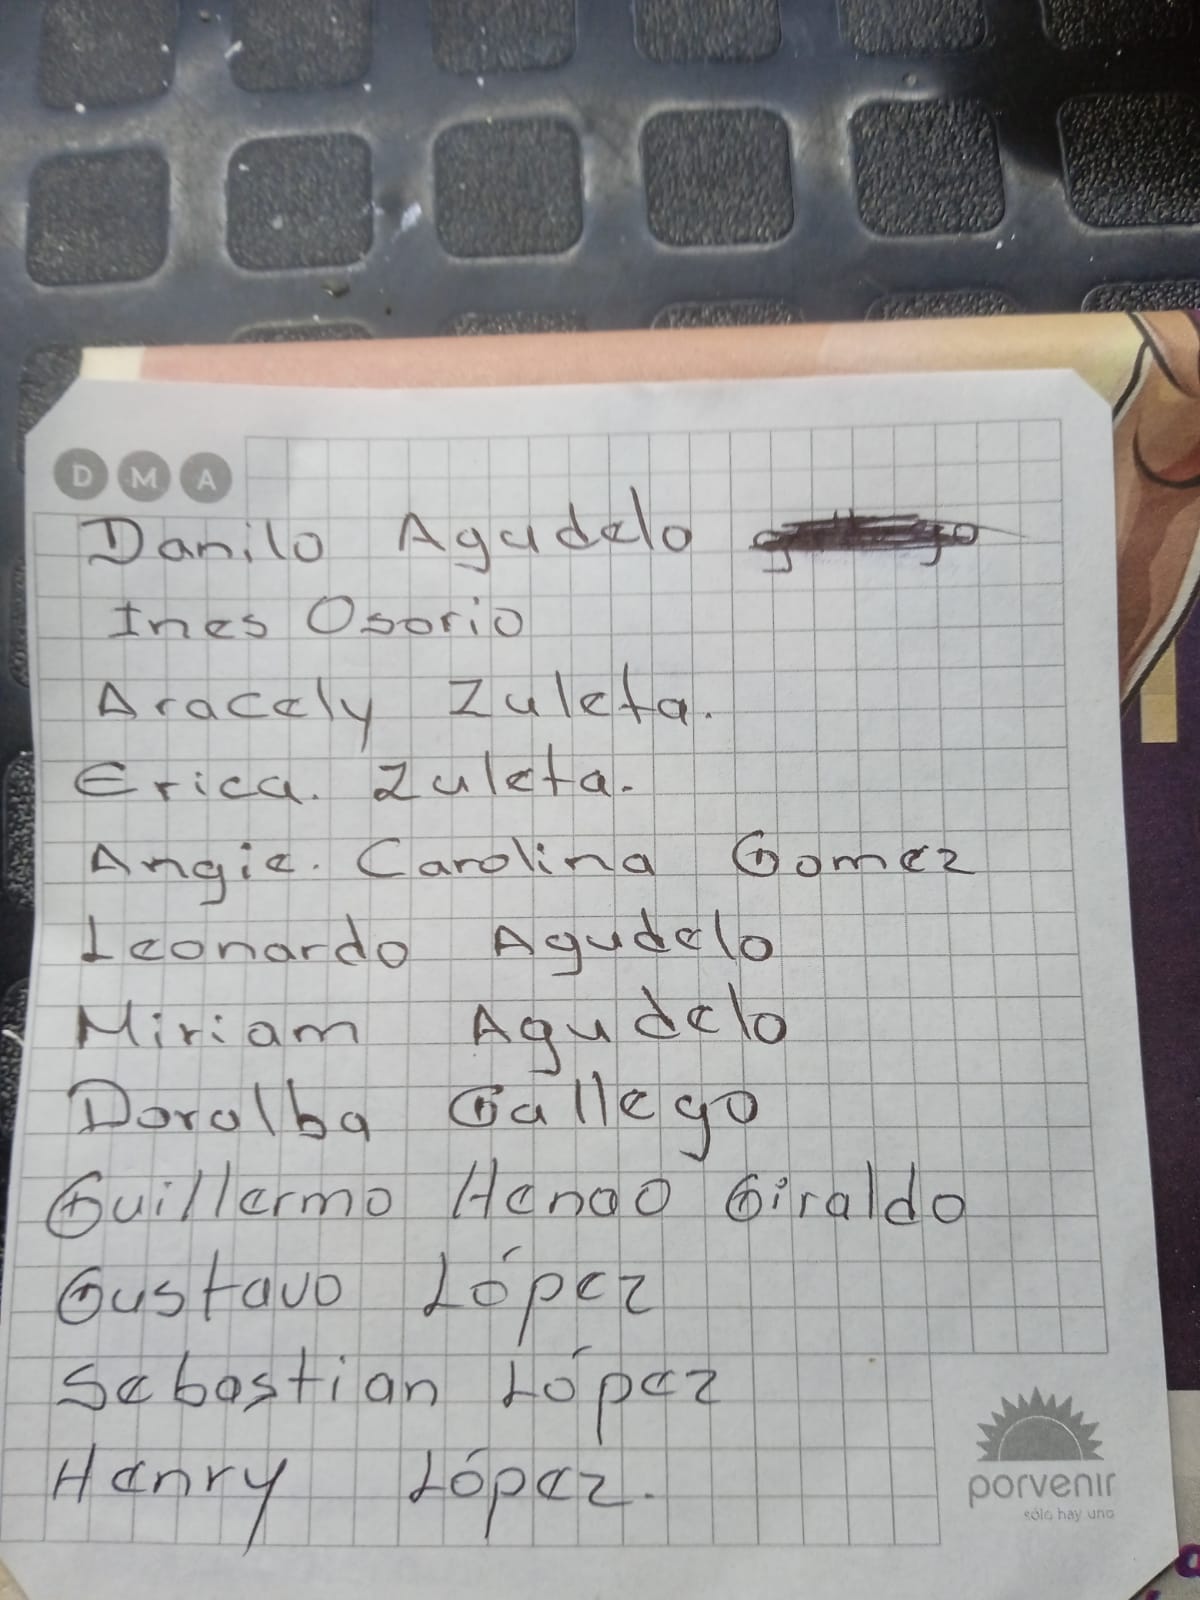 D M A
Danilo Agudelo
Ines Osorio
Aracely Zuleta.
Erica. Zuleta.
Angie. Carolina Gomez
Leonardo Agudelo
Miriam Agudelo
Doralba Gallego
Guillermo Henao Giraldo
Gustavo López
Sebastian López
Henry López.
porvenir
sólo hay uno